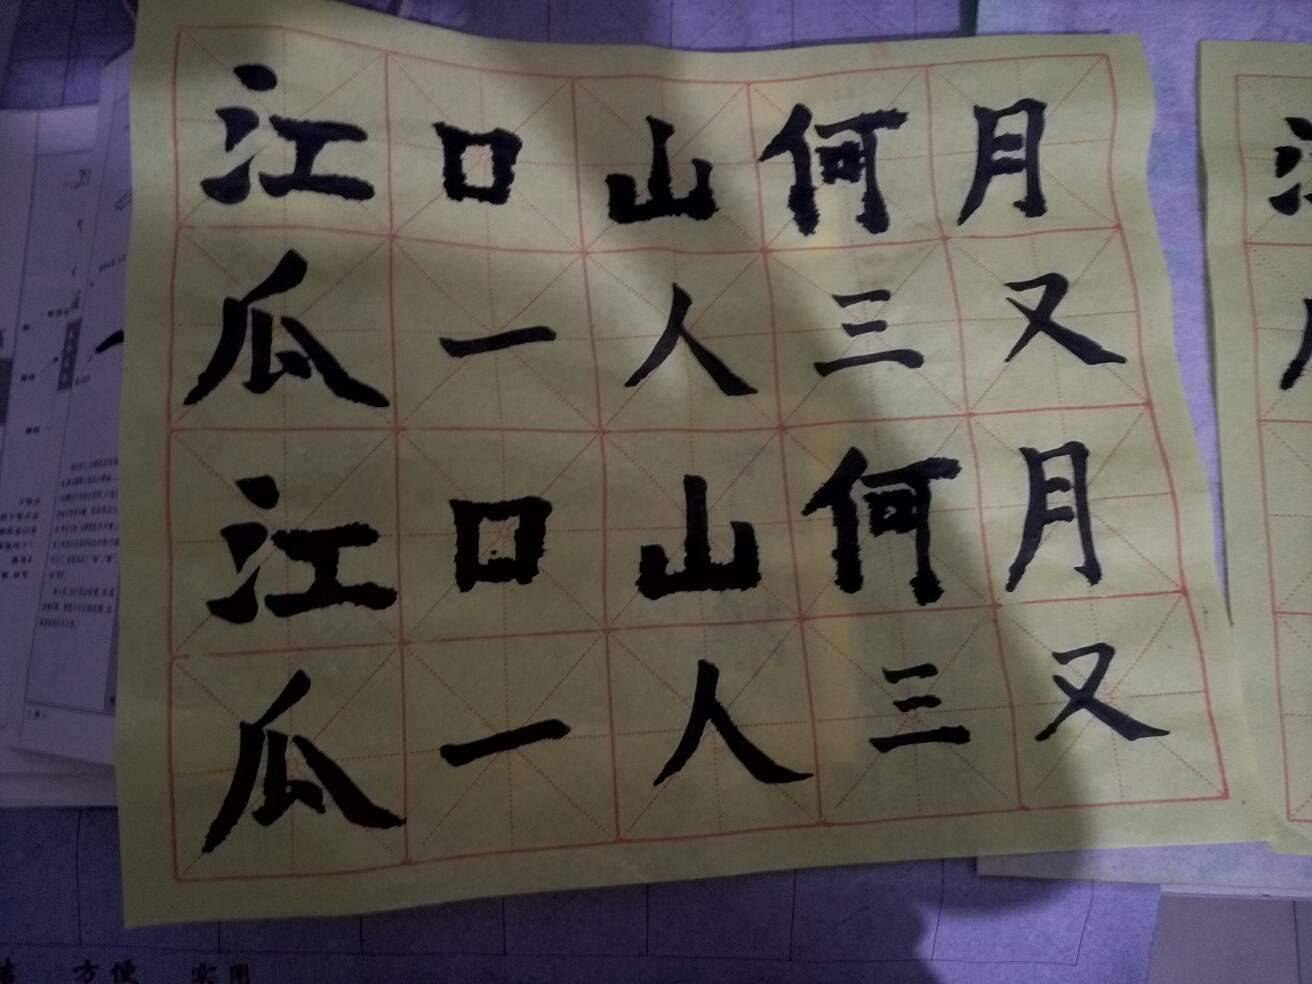 江口山何月
瓜一人三又
江口山何月
瓜一人三又
方便 实用